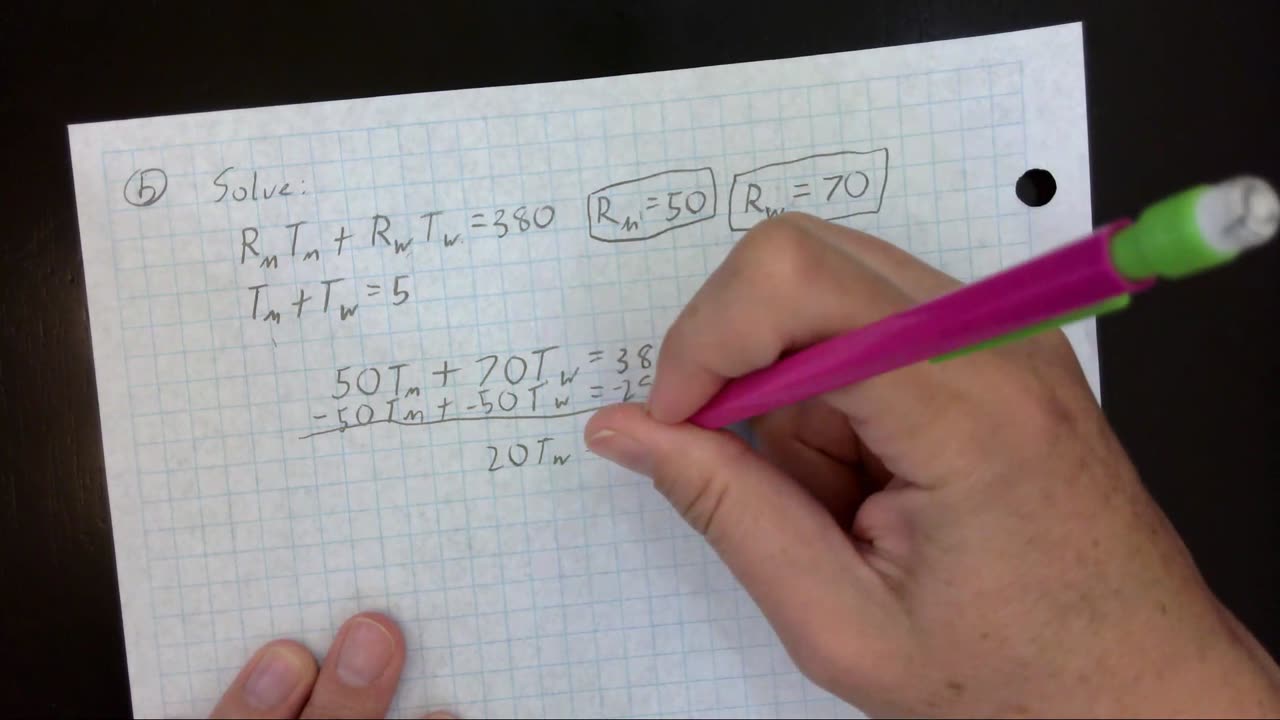 ⑤ Solve:
R_m T_m + R_w T_w = 380 R_m = 50 R_w = 70
T_m + T_w = 5
50T_m + 70T_w = 38
-50T_m + -50T_w = -25
20T_w =